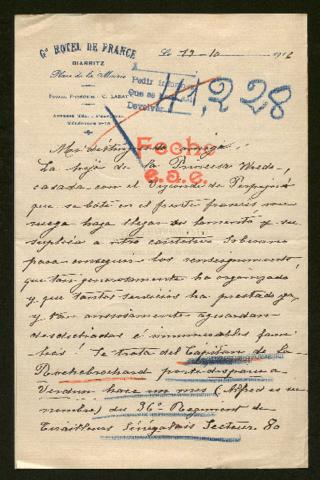 Gd HOTEL DE FRANCE
BIARRITZ
Place de la Mairie
Le 19-10
Pedir inform
que se
Devolver
41,228
Fecha
e.a.e.
Mi distinguido amigo:
La hija de la Princesa
casada con el Vizconde de
que se bate en el frente francés me
ruega haga llegar su lamento y su
suplica a
para conseguir los
que tan generosamente ha organizado
y que tantos servicios ha prestado ya,
y tan ansiosamente aguardan
desdichadas é innumerables fami
lias! Se trata del Capitan de La
Rochebrochard
Verdun hace un mes (Alfred es su
nombre) du 36e Regiment de
Tirailleurs Sénégalais Secteur 80